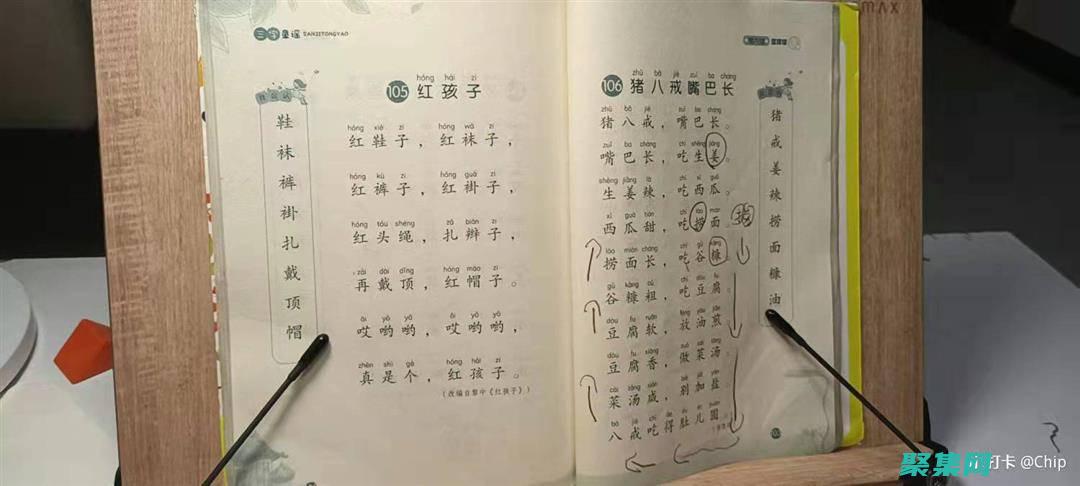 三字童谣 SANZITONGYAO
鞋
袜
裤
褂
扎
戴
顶
帽
hóng hái zi
105 红孩子
hóng xié zi hóng wà zi
红鞋子，红袜子，
hóng kù zi hóng guà zi
红裤子，红褂子，
hóng tóu shéng zā biàn zi
红头绳，扎辫子，
zài dài dǐng hóng mào zi
再戴顶，红帽子。
āi yō yō āi yō yō
哎哟哟，哎哟哟，
zhēn shì gè hóng hái zi
真是个，红孩子。
（改编自黎中《红孩子》）
MAX
zhū bā jiè zuǐ ba cháng
106 猪八戒嘴巴长
zhū bā jiè zuǐ ba cháng
猪八戒，嘴巴长。
zuǐ ba cháng chī shēng jiāng
嘴巴长，吃生姜。
shēng jiāng là chī xī guā
生姜辣，吃西瓜。
xī guā tián chī lāo miàn
西瓜甜，吃捞面。
lāo miàn cháng chī gǔ kāng
捞面长，吃谷糠。
gǔ kāng cū chī dòu fu
谷糠粗，吃豆腐。
dòu fu ruǎn fàng yóu jiān
豆腐软，放油煎。
dòu fu xiāng zuò cài tāng
豆腐香，做菜汤。
cài tāng xián bié jiā yán
菜汤咸，别加盐。
bā jiè chī de dù ér yuán
八戒吃得肚儿圆。
猪
戒
姜
辣
捞
面
糠
油
聚集网
打卡 @Chip